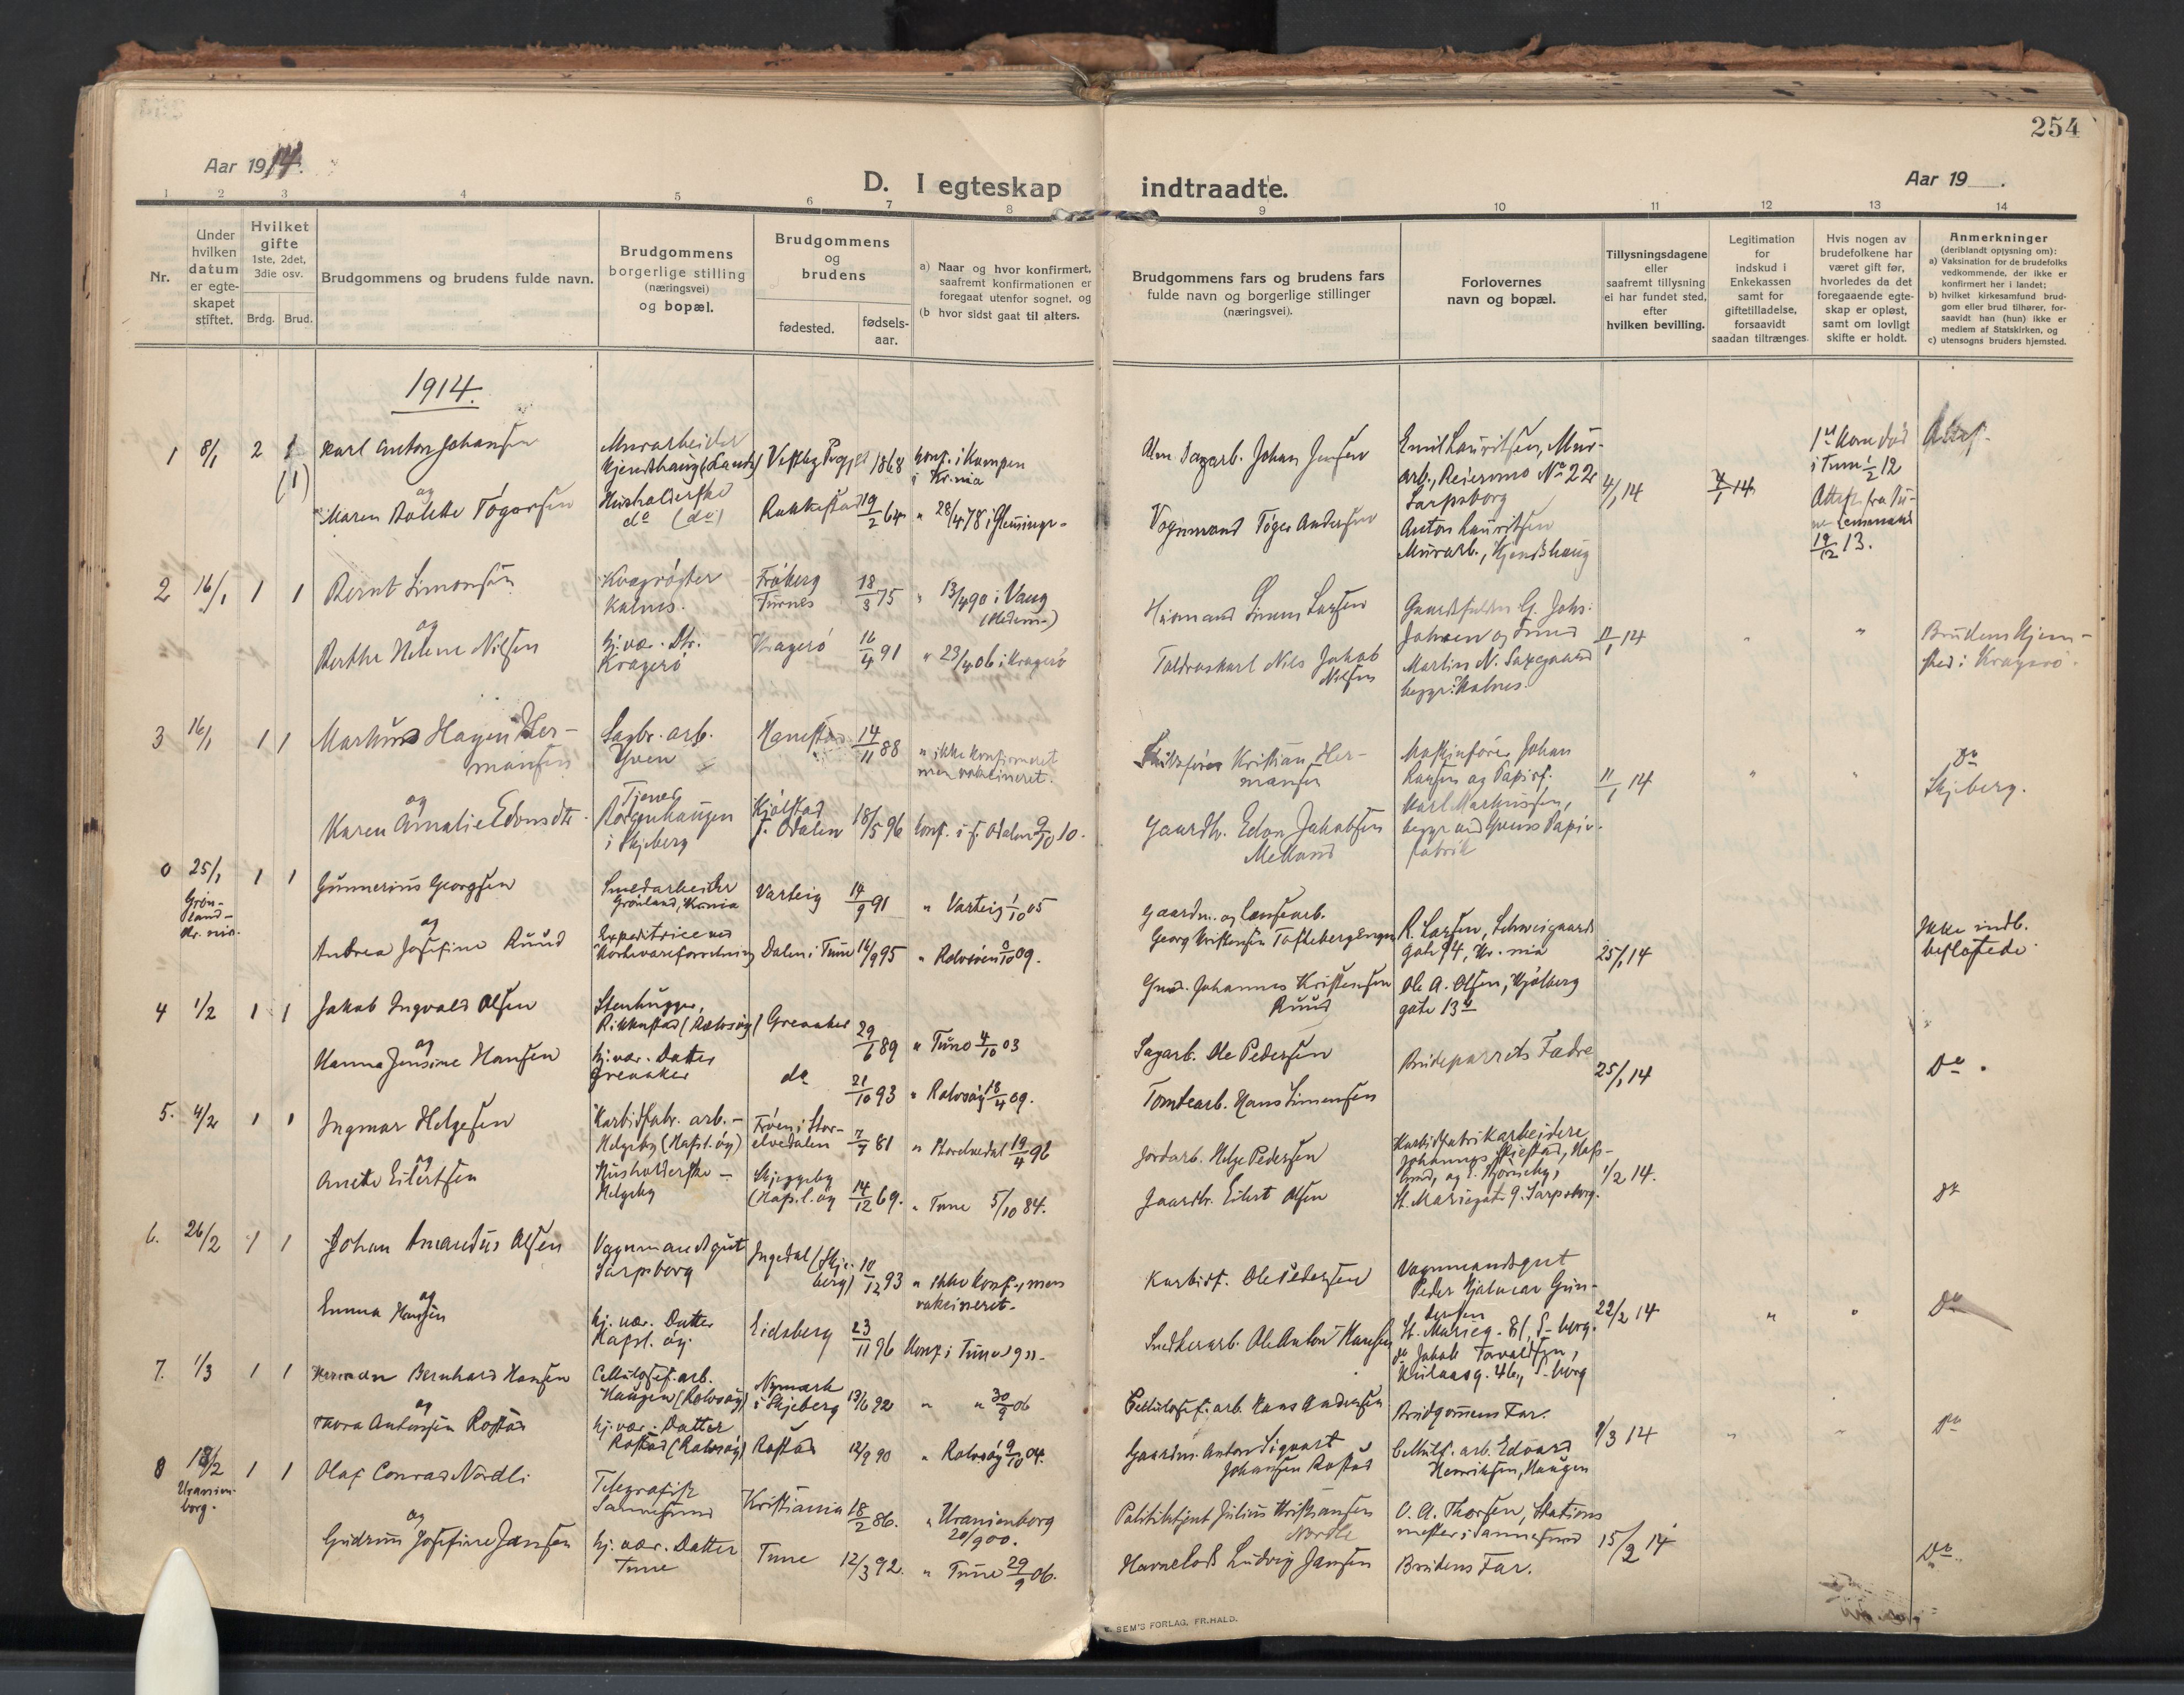 254
Aar 1914.
D. I egteskap indtraadte.
Aar 19 .
1 2 3 4 5 6 7 8 9 10 11 12 13 14
Nr.
Under hvilken datum er egteskapet stiftet.
Hvilket gifte 1ste, 2det, 3die osv.
Brdg. Brud.
Brudgommens og brudens fulde navn.
Brudgommens borgerlige stilling (næringsvei) og bopæl.
Brudgommens og brudens
fødested.
fødselsaar.
a) Naar og hvor konfirmert, saafremt konfirmationen er foregaat utenfor sognet, og
(b hvor sidst gaat til alters.
Brudgommens fars og brudens fars fulde navn og borgerlige stillinger (næringsvei).
Forlovernes navn og bopæl.
Tillysningsdagene eller saafremt tillysning ei har fundet sted, efter hvilken bevilling.
Legitimation for indskud i Enkekassen samt for giftetilladelse, forsaavidt saadan tiltrænges.
Hvis nogen av brudefolkene har været gift før, hvorledes da det foregaaende egteskap er opløst, samt om lovligt skifte er holdt.
Anmerkninger
(deriblandt opjysning om):
a) Vaksination for de brudefolks vedkommende, der ikke er konfirmert her i landet;
b) hvilket kirkesamfund brudgom eller brud tilhører, forsaavidt han (hun) ikke er medlem af Statskirken, og
c) utensogns bruders hjemsted.
1914.
1 8/1 2 1 Karl Anton Johansen
Murarbeider
1868 konf. i Kampen
i Kr.nia
Johan Jensen
Emil Lauritsen, Mur-
arb., No 22
Sarpsborg
4/1 14
4/1 14
i Tune 1/2 12
(1)
og
Maren Togersen
Husholderske
do (do)
Rakkestad 19/2 64 " 28/4 78 i Glemminge
Vognmand Toger Andersen
Anton Lauritsen
Murarb., Kjendshaug
19/12 13.
2 16/1 1 1 Bernt Simonsen
Kalnes.
18/3 75 " 13/4 90 i Vang
(Hedem.)
Husmand Simen Larsen
og
Berthe Helene Nilsen
hj. vær. Dtr.
Kragerø
Kragerø 16/4 91 " 23/4 06 i Kragerø
Nils Jakob
Nilsen
Martin N.
begge: Kalnes.
11/1 14 " "
Brudens Hjem-
sted: Kragerø.
3 16/1 1 1 Markus Hagen Her-
mansen
Sagbr. arb.
Yven
14/11 88 " ikke konfirmeret
men vakcineret.
Kristian Her-
mansen
Maskinfører Johan
Larsen og Papirf.
Karl Markussen,
11/1 14 " "
Do
Skjeberg.
og
Karen Amalie Edonsdtr.
Tjener
Borgenhaugen
i Skjeberg
Kjølstad
S. Odalen 18/5 96 konf. i S. Odalen 9/10 10.
Gaardbr. Edon Jakobsen
Melland
begge ved Yvens Papir-
fabrik
0 25/1 1 1 Gunnerius Georgsen
Grøn-
land-
Kr. nia.
Smedarbeider
Grønland, Kr.nia
Varteig 14/9 91 " Varteig 1/10 05
Gaardm. og Lænsearb.
Georg Kristensen
R. Larsen, Schweigaards
gate 94, Kr. nia
25/1 14
Ikke indb.
og
Andrea Josefine Ruud
Expeditrice ved
Dalen i Tune 14/9 95 " Rolvsøen 3/10 09.
Johannes Kristensen
Ruud
Ole A. Olsen, Kjølberg
gate 13 b
4 1/2 1 1 Jakob Ingvald Olsen
Stenhugger,
Greaaker 29/6 89 " Tune 4/10 03
Sagarb. Ole Pedersen
Brudeparrets Fædre
25/1 14
Do
og
Hanna Jensine Hansen
hj. vær. Datter
Greaaker
do 21/10 93 " Rolvsøy 18/4 09.
Tomtearb. Hans Simensen
5. 4/2 1 1 Ingmar Helgesen
Karbidfabr. arb. -
Helgeby (Hafsl. øy)
Frøen i Stor-
elvedalen 7/7 81 " Storelvedal 19/4 96
Jordarb. Helge Pedersen
Karbidfabrikarbeidere
St. Mariegt. 9. Sarpsborg.
1/2 14.
do
og
Anette Eilertsen
Husholderske -
Helgeby
Skjeggeby
(Hafsl. øy 14/12 69. " Tune 5/10 84.
Gaardbr. Eilert Olsen
6. 26/2 1 1 Johan Amandus Olsen
Vognmandsgut
Sarpsborg
Ingedal (Skje-
berg) 10/12 93 " ikke konf., men
vakcineret.
Karbidf. Ole Pedersen
Vognmandsgut
Peder Hjalmar Gun-
dersen
St. Marieg. 81, S-borg.
22/2 14 " "
Do
og
Emma Hansen
hj. vær. Datter
Hafsl. øy.
Eidsberg 23/11 96 Konf. i Tune 1911-
Snedkerarb. Ole Anton Hansen
do Jakob Torvaldsen,
46, S-borg
7. 1/3 1 1 Herman Bernhard Hansen
Cellulosef. arb.
Haugen (Rolvsøy)
Nymark
i Skjeberg 13/6 92 " " 30/9 06
Cellulosef. arb. Hans Andersen
Brudgommens Far.
1/3 14 " "
Do
og
Thora Antonsen Rostad
hj. vær. Datter
Rostad (Rolvsøy)
Rostad 12/9 90 " Rolvsøy 9/10 04.
Gaardm. Anton Sigvart
Johansen Rostad
Cellulf. arb. Edvard
Henriksen, Haugen
8 18/2 1 1 Olaf Conrad Nordli
Uranien-
borg.
Telegrafist
Sannesund
Kristiania 18/2 86. " Uranienborg
20/9 00.
Politibtjent Julius Kristiansen
Nordli
O. A. Thorsen, Stations
mester i Sannesund
15/2 14
Do
og
Gudrun Josefine Jansen
hj. vær. Datter
Tune
Tune 12/3 92. " Tune 29/9 06.
Havnelods Ludvig Jansen
Brudens Far.
E. SEM'S FORLAG, FR.HALD.